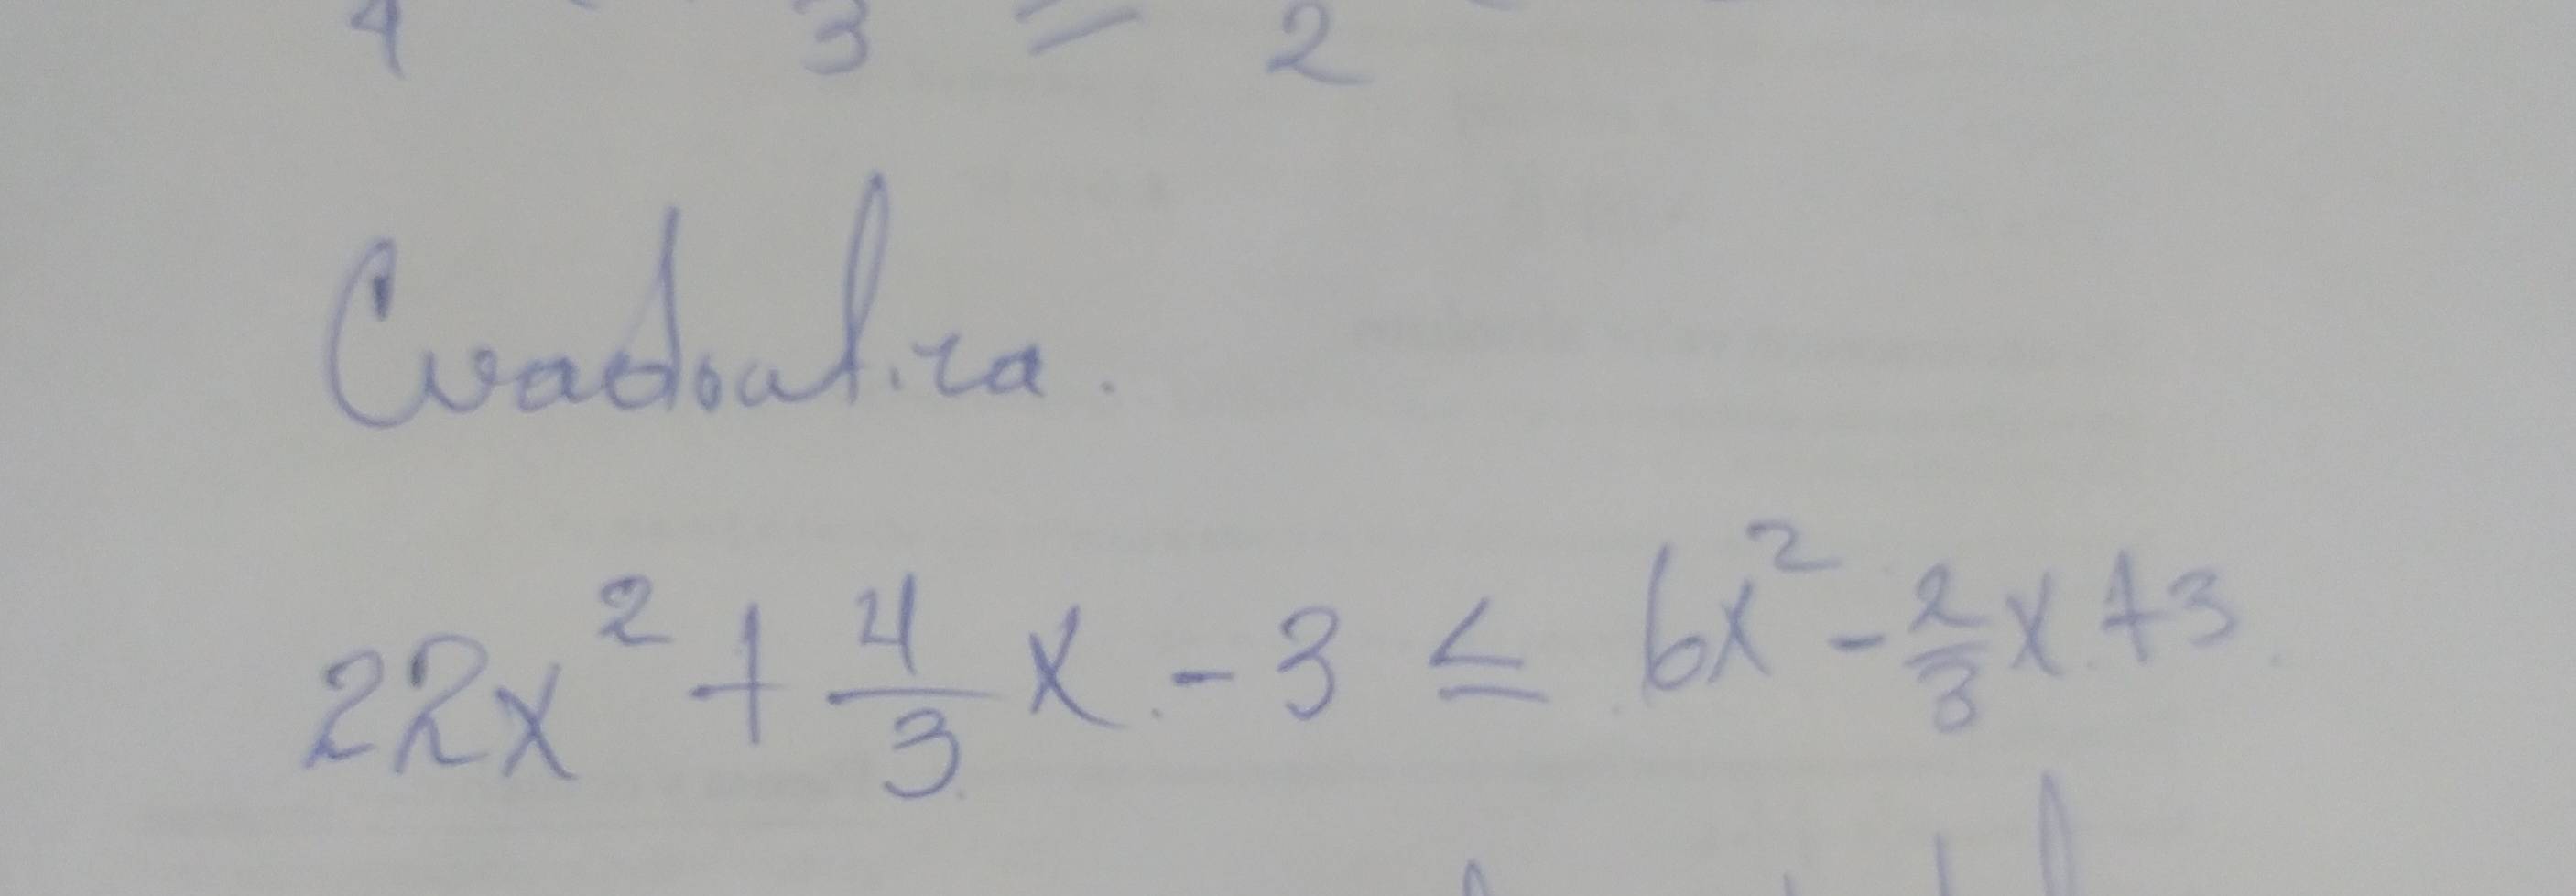 4 3 = 2
Cuadratica.
22x² + 4/3 x - 3 ≤ 6x² - 2/3 x + 3